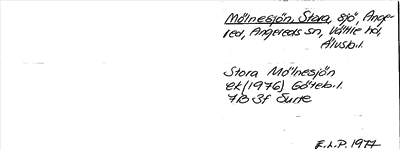 Mölnesjön, Stora, sjö, Ange-
red, Angereds sn, Vättle hd,
Älvsb.l.
Stora Mölnesjön
ek (1976) Göteb.l.
7B 3f Surte
E.L.P. 1977